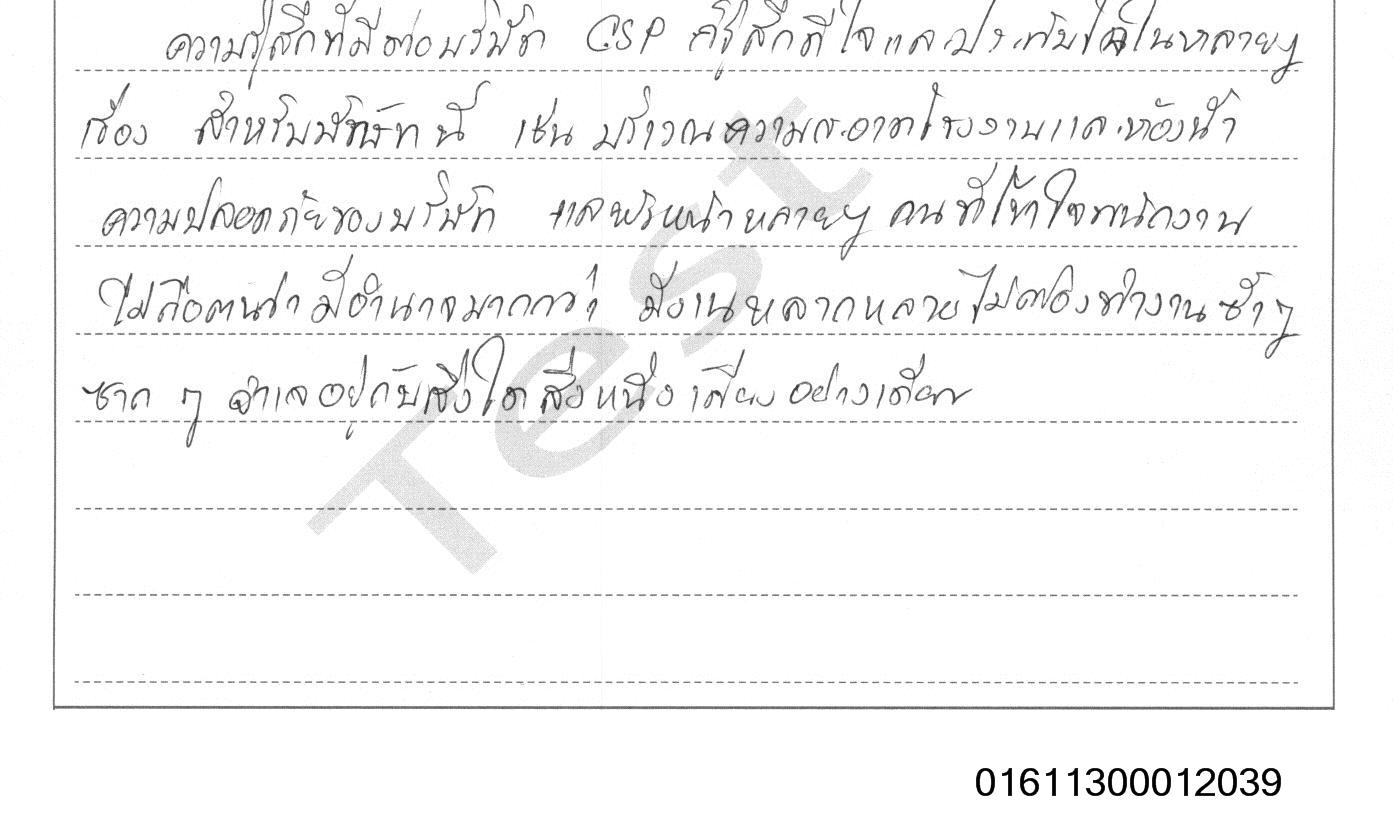 ความรู้สึกที่มีต่อบริษัท CSP ก็รู้สึกดีใจและประทับใจในหลายๆ
เรื่อง สำหรับบริษัทนี้ เช่น บริเวณความสะอาดโรงงานและห้องน้ำ
ความปลอดภัยของบริษัท และหัวหน้าหลายๆ คนที่เข้าใจพนักงาน
ไม่ถือตนว่ามีอำนาจมากกว่า มีงานหลากหลายไม่ต้องทำงานซ้ำๆ
ซาก ๆ จำเจอยู่กับสิ่งใดสิ่งหนึ่งเพียงอย่างเดียว
Test
01611300012039